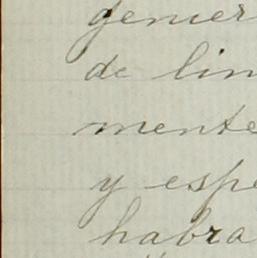 gener
de lin
mente
y espe
habra